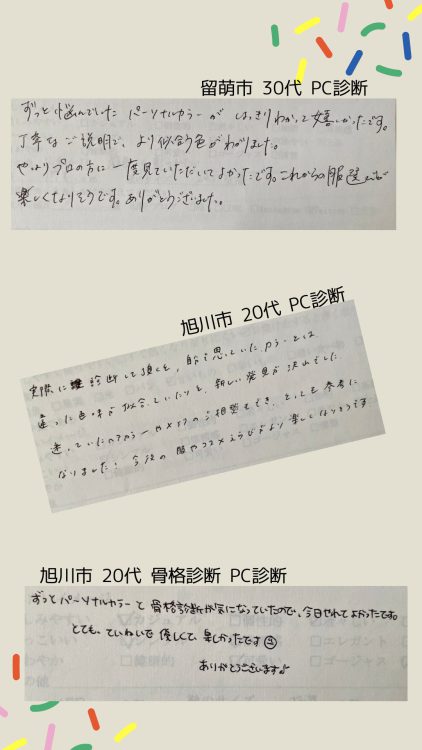 留萌市 30代 PC診断
ずっと悩んでいた パーソナルカラーが はっきりわかって嬉しかったです。
丁寧なご説明で、より似合う色がわかりました。
やはりプロの方に一度見ていただいてよかったです。これからの服選びが
楽しくなりそうです。ありがとうございました。
旭川市 20代 PC診断
実際に 診断して頂くと、自分で思っていたカラーとは
違った色味が似合っていたりと、新しい発見が沢山でした
迷っていたヘアカラーやメイクのご相談もでき、とっても参考に
なりました! 今後の 服やコスメえらびがより楽しくなりそうです
旭川市 20代 骨格診断 PC診断
ずっとパーソナルカラーと骨格診断が気になっていたので、今日やれてよかったです。
とても、ていねいで優しくて、楽しかったです
ありがとうございます♪
カジュアル
エレガント
ゴージャス
の他